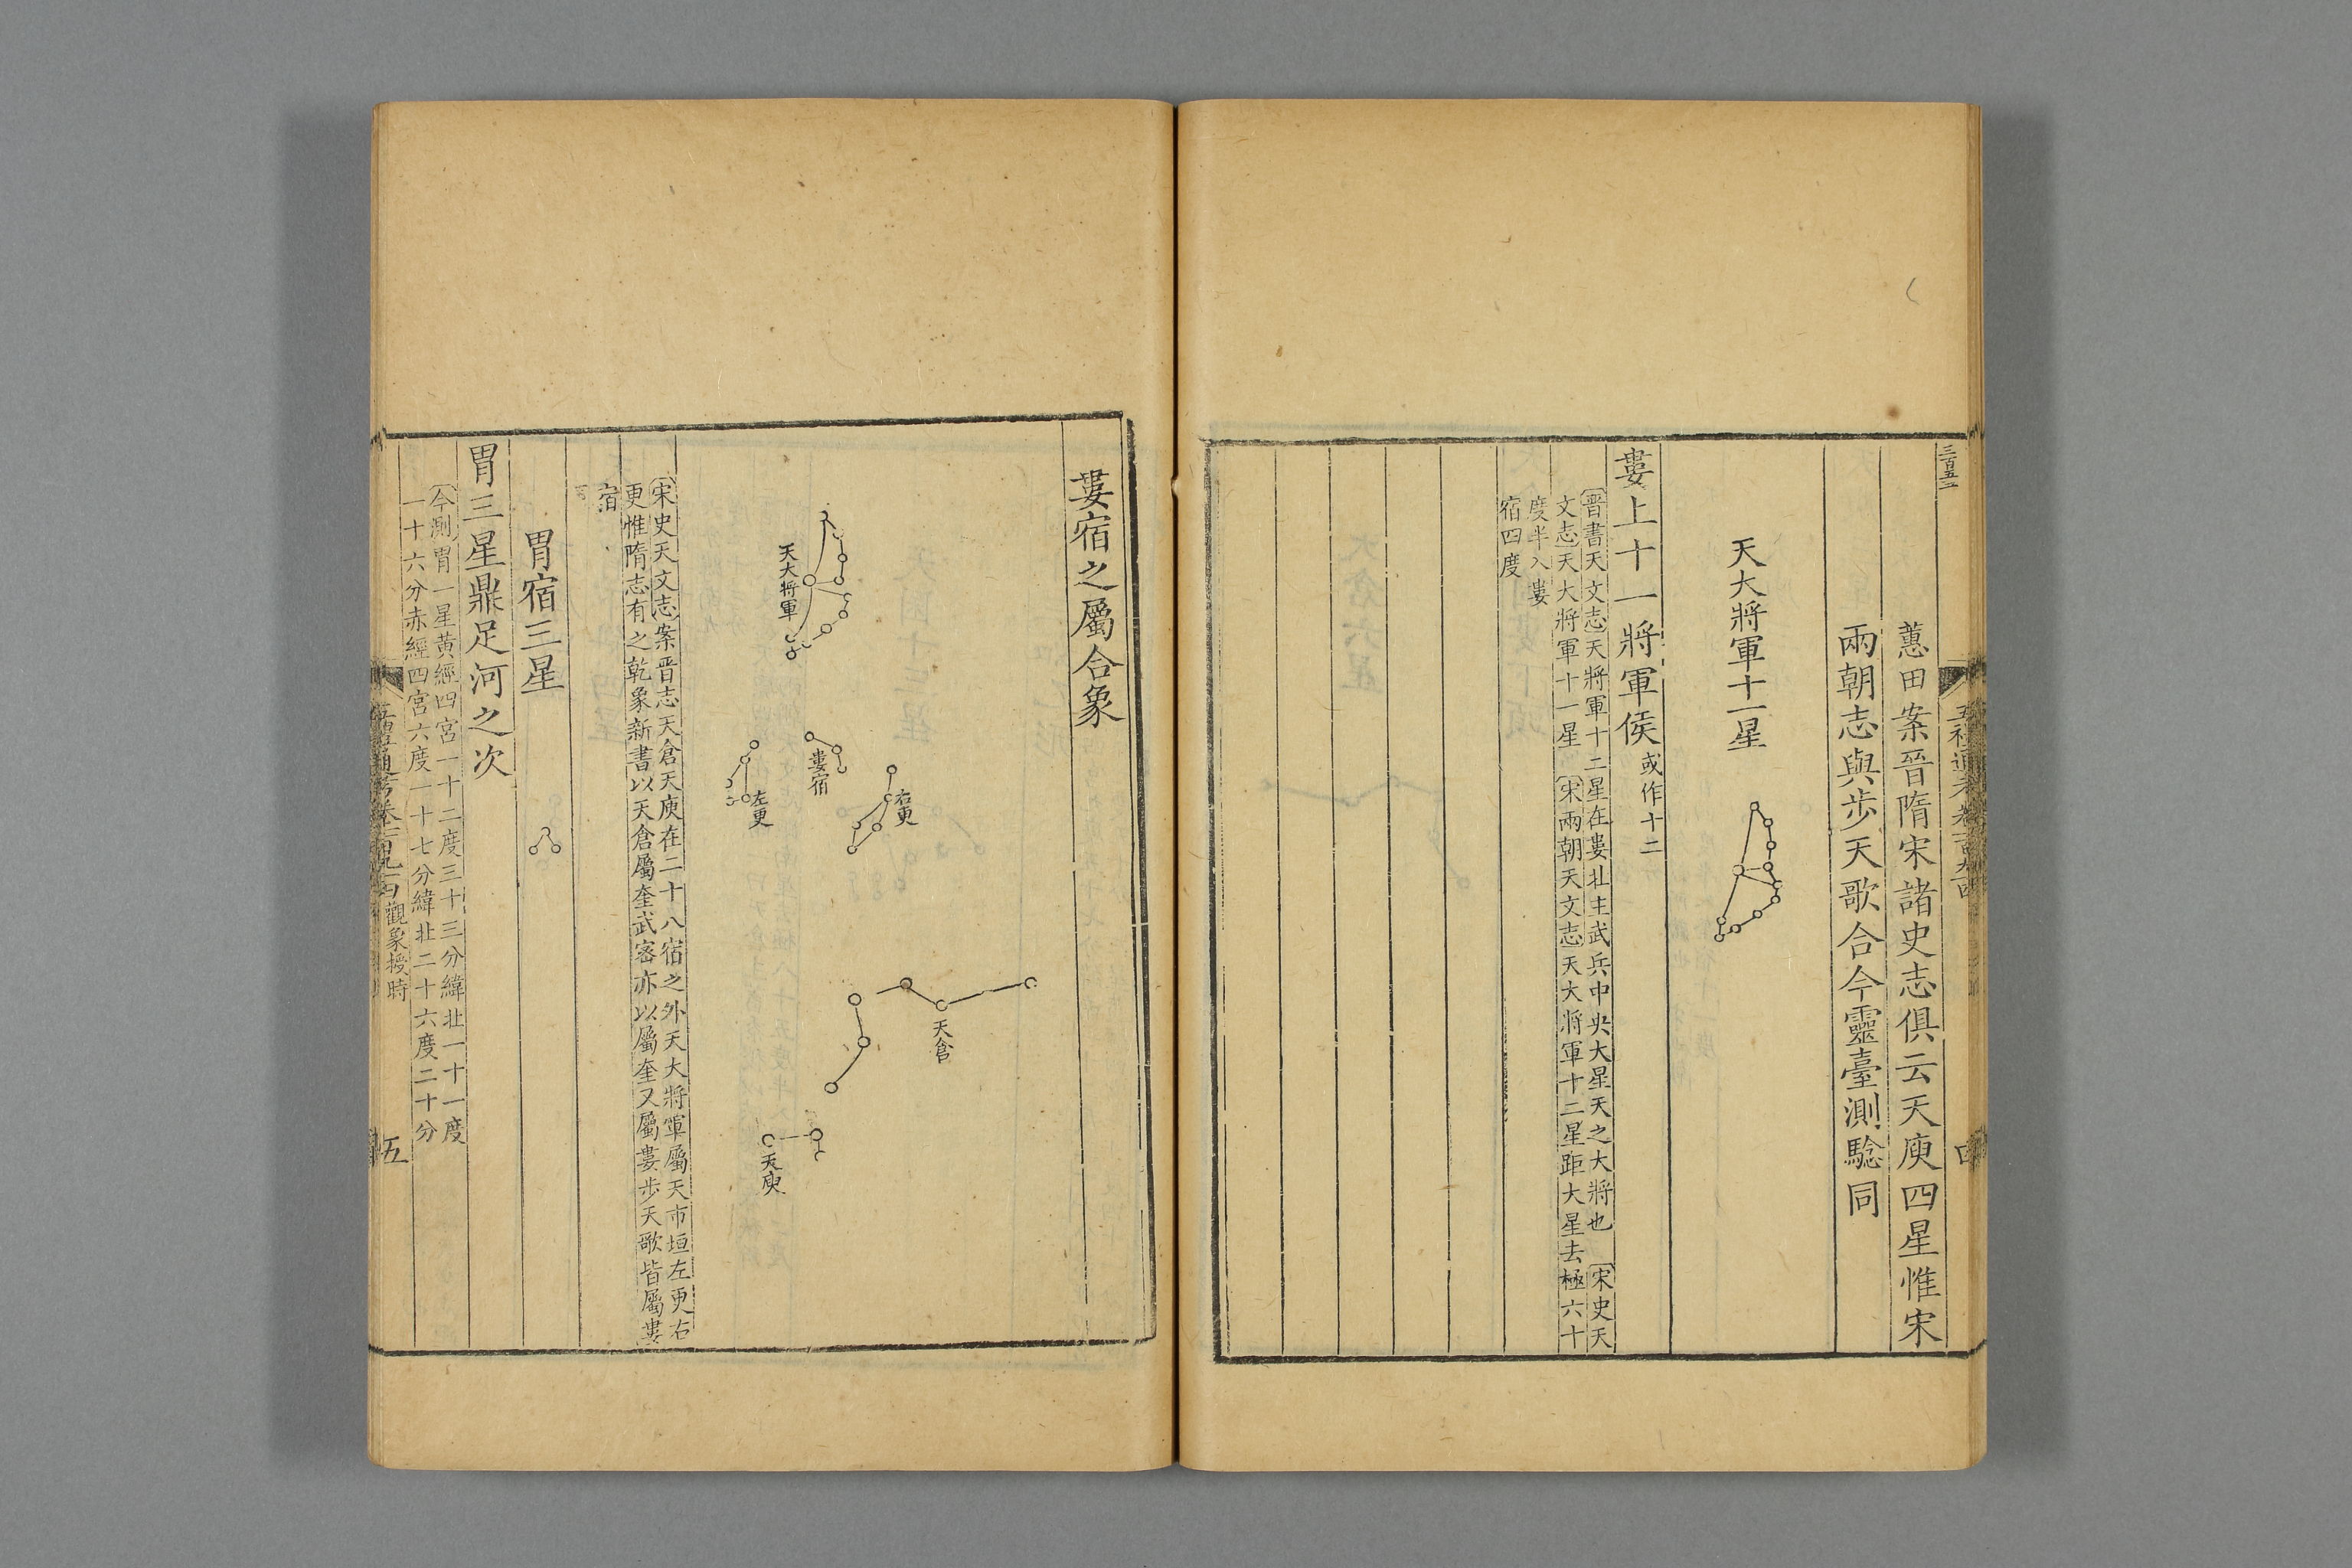 三百五二
五禮通考卷一百九十四
四
蕙田案晉隋宋諸史志俱云天庾四星惟宋
兩朝志與步天歌合今靈臺測騐同
天大將軍十一星
婁上十一將軍侯或作十二
晋書天文志天將軍十二星在婁北主武兵中央大星天之大將也 宋史天
文志天大將軍十一星 宋兩朝天文志天大將軍十二星距大星去極六十
度半入婁
宿四度
婁宿之屬合象
天大將軍
婁宿
右更
左更
天倉
天庾
宋史天文志案晋志天倉天庾在二十八宿之外天大將軍屬天市垣左更右
更惟隋志有之乾象新書以天倉屬奎武密亦以屬奎又屬婁步天歌皆屬婁
宿
胃宿三星
胃三星鼎足河之次
今測胃一星黄經四宮一十二度三十三分緯北一十一度
一十六分赤經四宮六度一十七分緯北二十六度二十分
五禮通考卷一百九十四 觀象授時
五